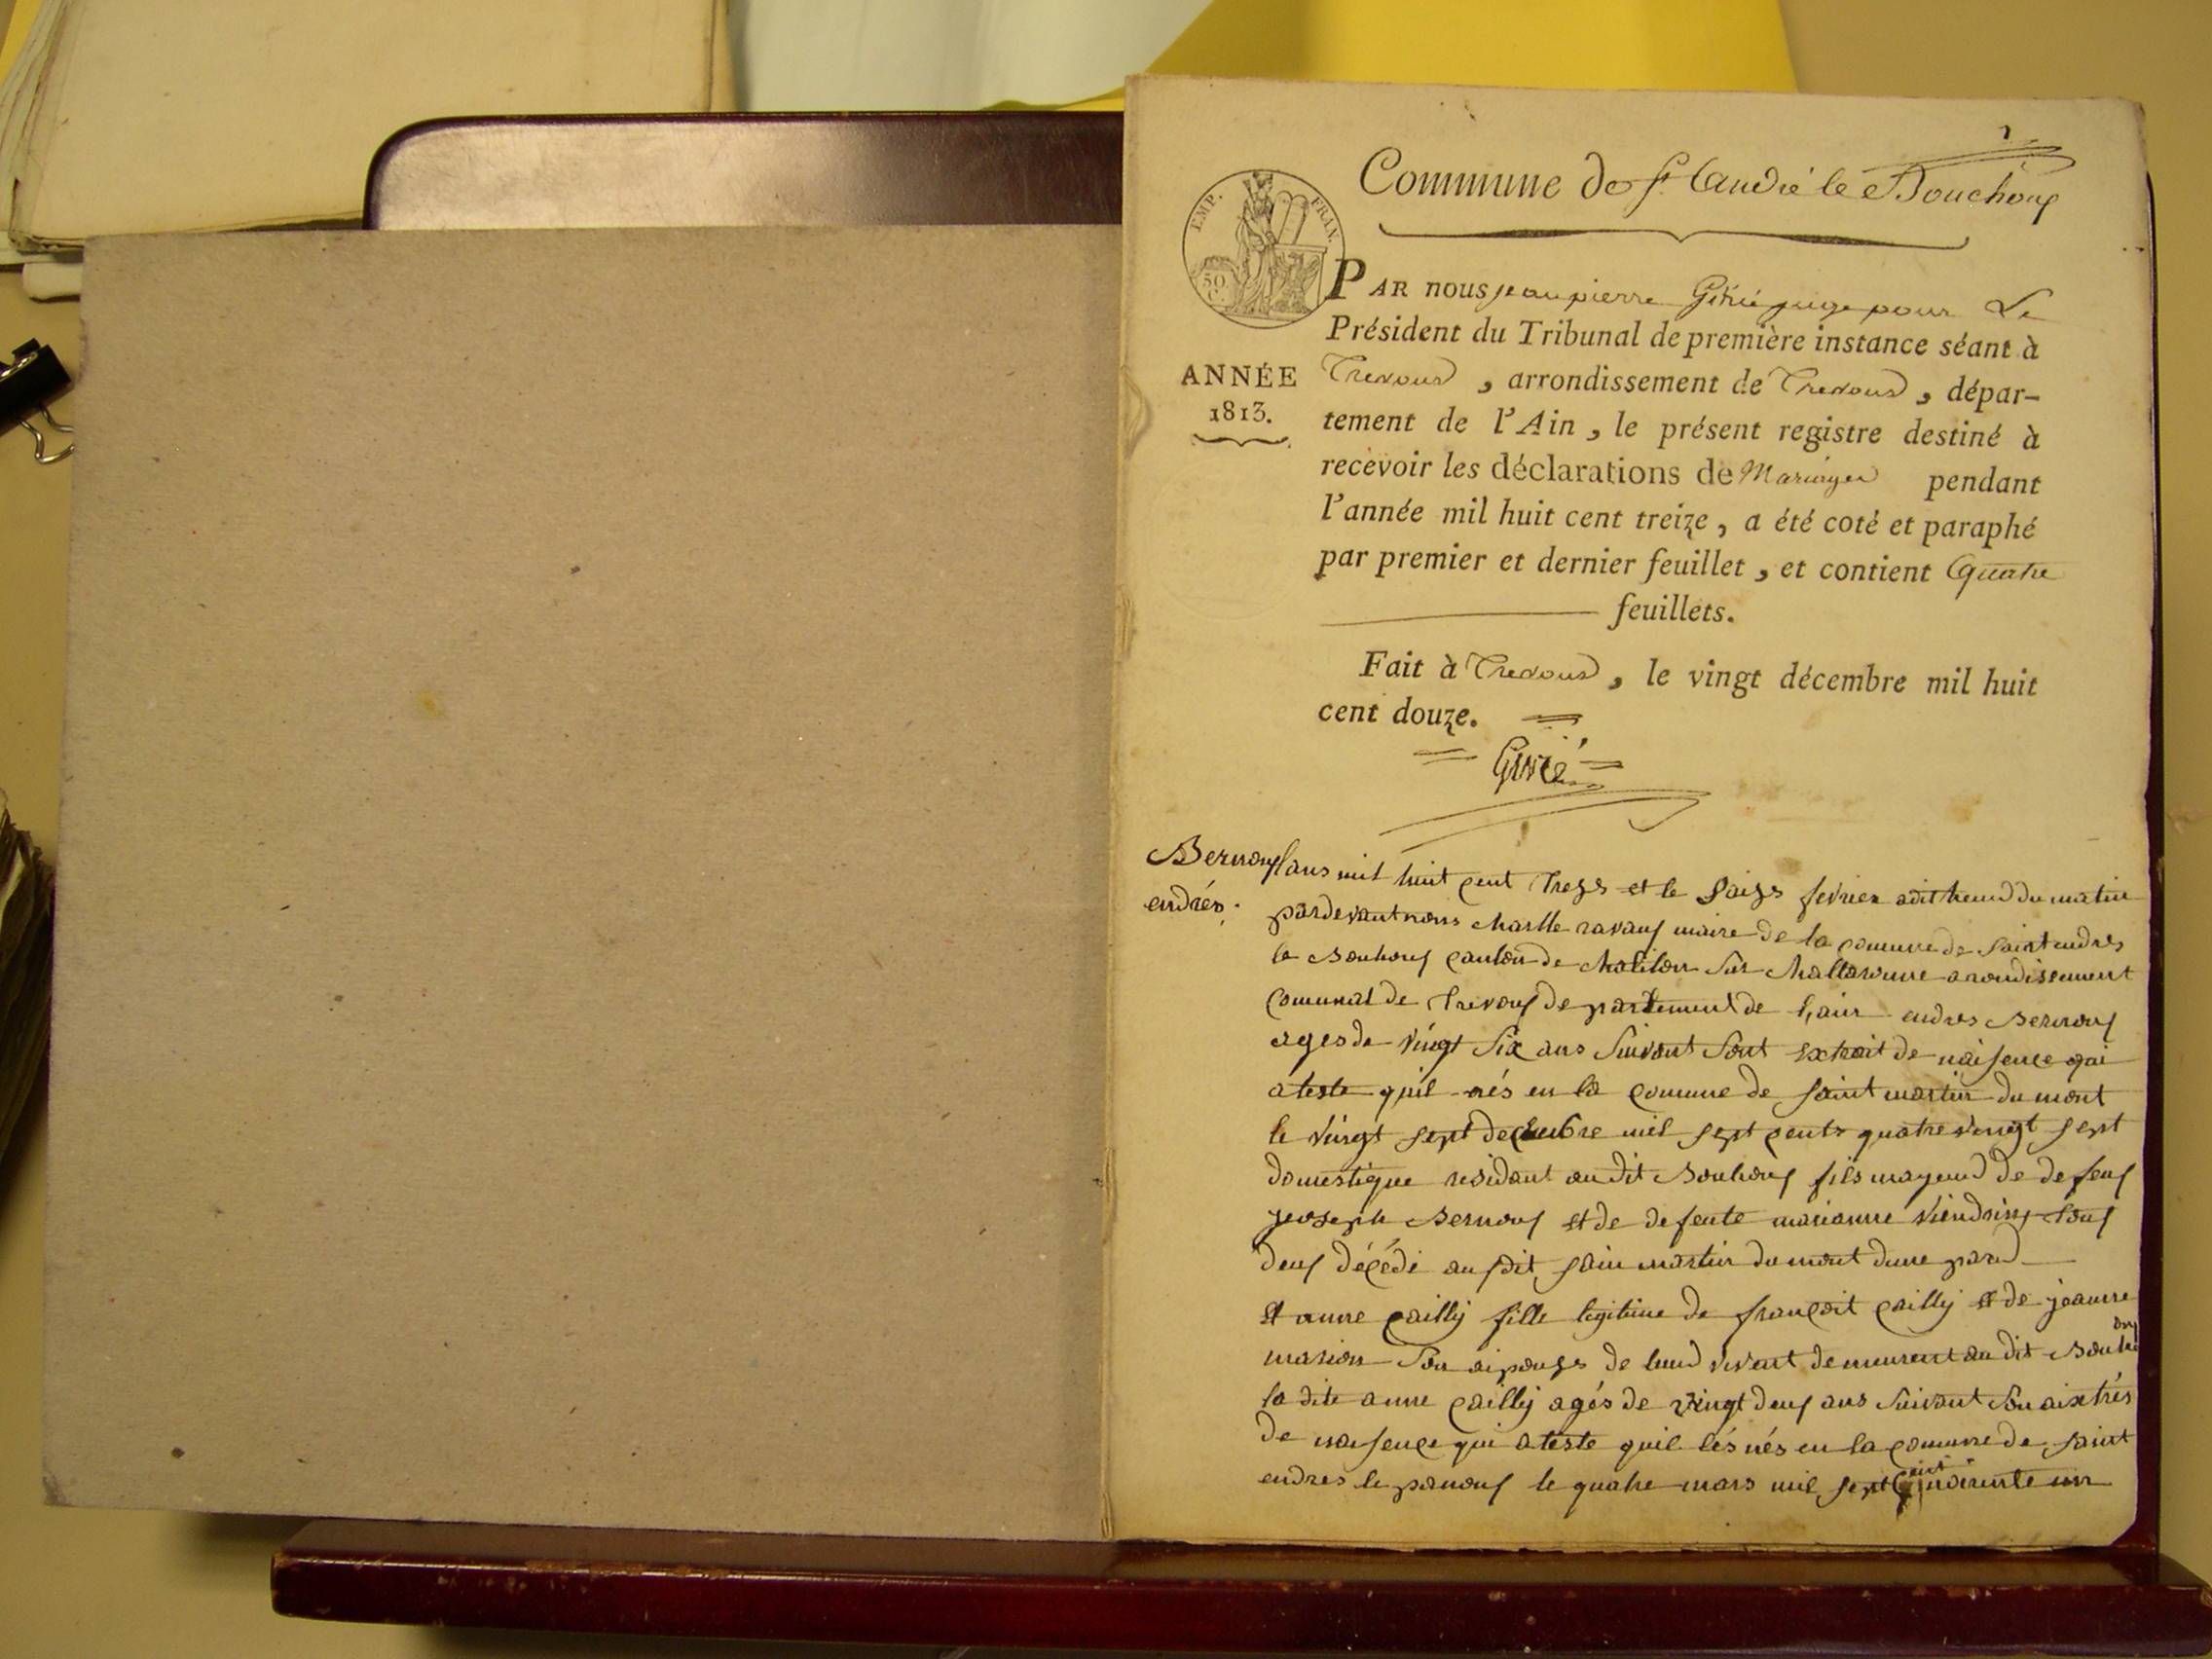 1
Commune de St. André le Bouchoux
EMP. FRAN.
50
C.
PAR nous jean pierre Giriè juge pour Le
Président du Tribunal de première instance séant à
ANNÉE
1813.
Trevoux , arrondissement de Trevoux , dépar-
tement de l'Ain , le présent registre destiné à
recevoir les déclarations de Mariages pendant
l'année mil huit cent treize , a été coté et paraphé
par premier et dernier feuillet , et contient Quatre
feuillets.
Fait à Trevoux , le vingt décembre mil huit
cent douze.
Bernoux
endrés.
lans mil huit cent treze et le saize fevrier a dit heure du matin
pardevant nous charlle ravaux maire de la comune de saint endres
le Bouhoux canton de chatilon sur challaronne arondissement
comunal de trevoux departement de l'ain endres Bernoux
ages de vingt six ans suivant sont extrait de naisence qui
ateste quil nés en la comune de saint martin du mont
le vingt sept decembre mil sept cents quatre vingt sept
domestique residant audit Bouhoux fils mageur de defeux
jeoseph Bernoux et de defente marianne tous
deux décédé audit sain martin du mont dune pard
et anne cailly fille legitime de françoit cailly et de jeanne
marion son aipouze de leurd vivant demeurant au dit Bouhoux
la dite anne cailly agés de vingt deux ans suivant son aixtrés
de naisence qui ateste quil lés nés en la comune de saint
endres le panoux le quatre mars mil sept cent un